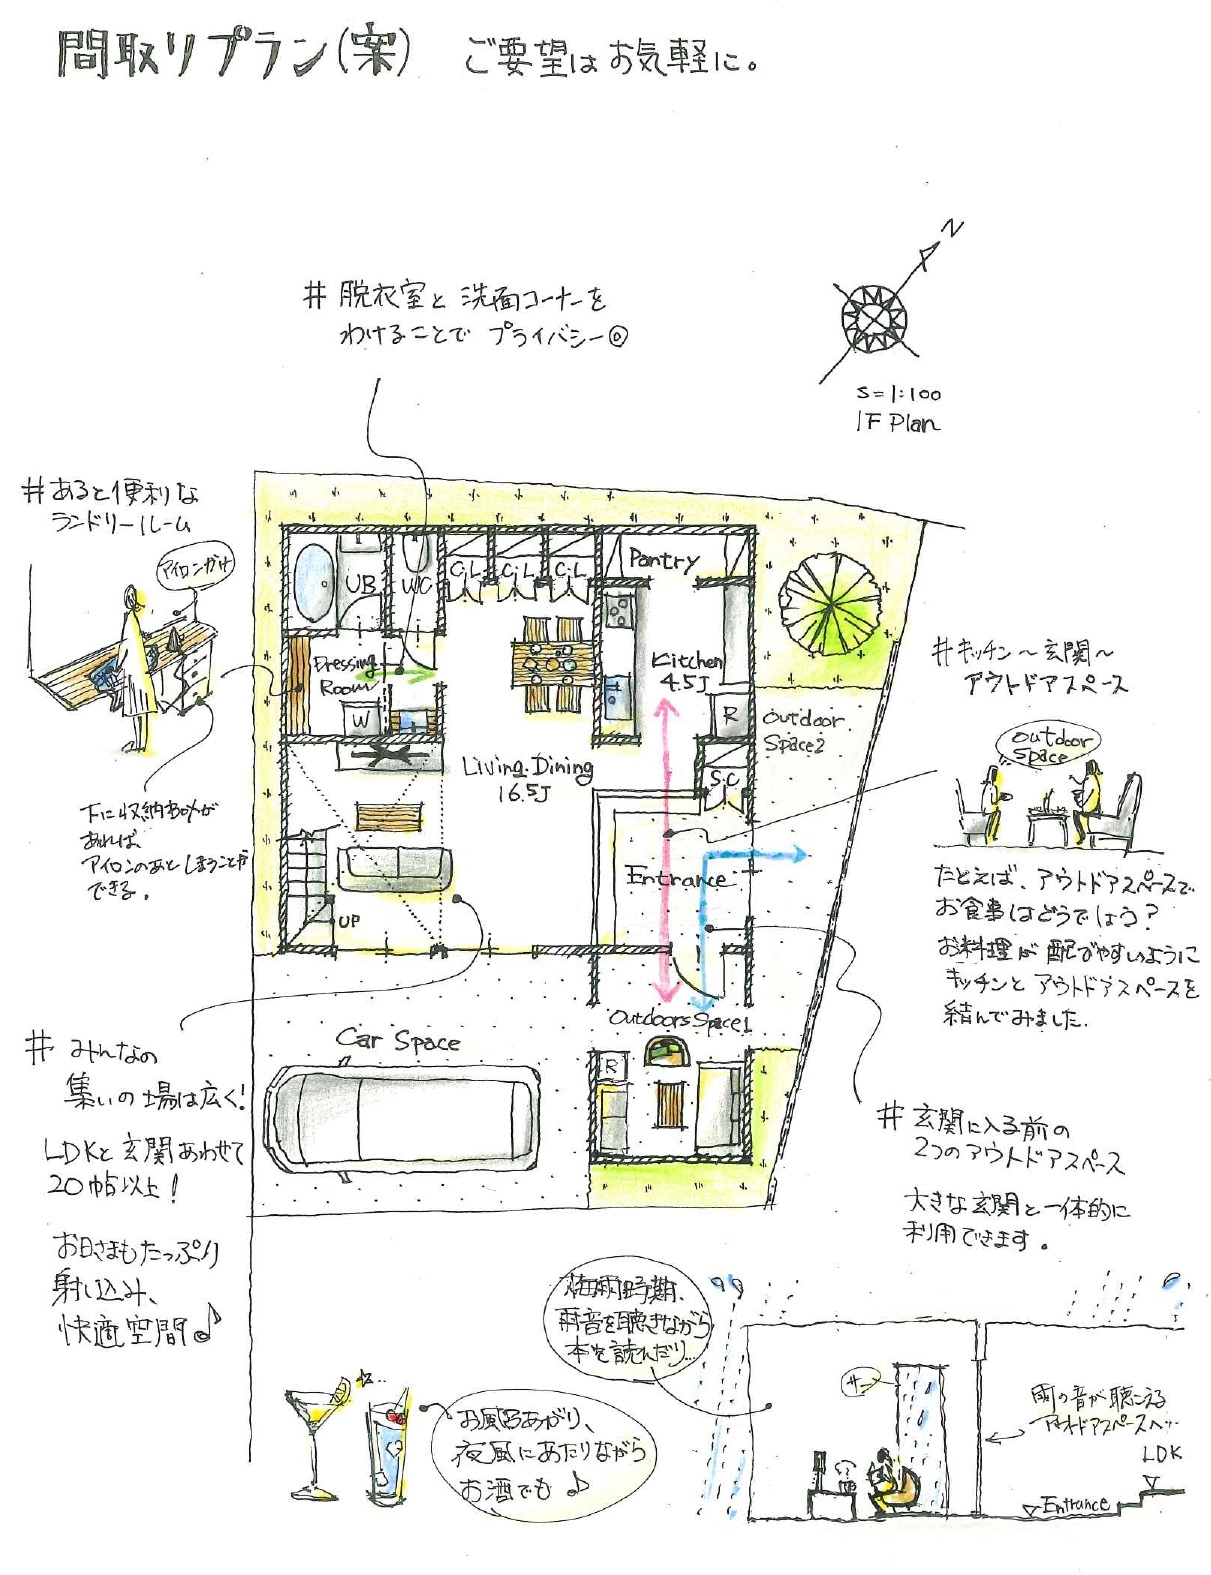 間取りプラン(案) ご要望はお気軽に。
N
S=1:100
1F Plan
# 脱衣室と 洗面コーナーを
わけることで プライバシー◎
# あると便利な
ランドリールーム
アイロンがけ
下に収納BOXが
あれば、
アイロンのあと しまうことが
できる。
UB
WC
C・L
C・L
C・L
Pantry
Dressing
Room
W
Kitchen
4.5J
R
Outdoor
Space2
Living・Dining
16.5J
S・C
Entrance
UP
Outdoors Space1
R
Car Space
# キッチン〜玄関〜
アウトドアスペース
outdoor
space
たとえば、アウトドアスペースで
お食事はどうでしょう?
お料理が配ぜしやすいように
キッチンと アウトドアスペースを
結んでみました。
# みんなの
集いの場は広く!
LDKと玄関あわせて
20帖以上!
お日さまもたっぷり
射し込み、
快適空間♪
# 玄関に入る前の
2つのアウトドアスペース
大きな玄関と一体的に
利用できます。
梅雨時期、
雨音を聴きながら
本を読んだり…
お風呂あがり、
夜風にあたりながら
お酒でも♪
サー
雨の音が聴こえる
アウトドアスペースへ…
LDK
Entrance